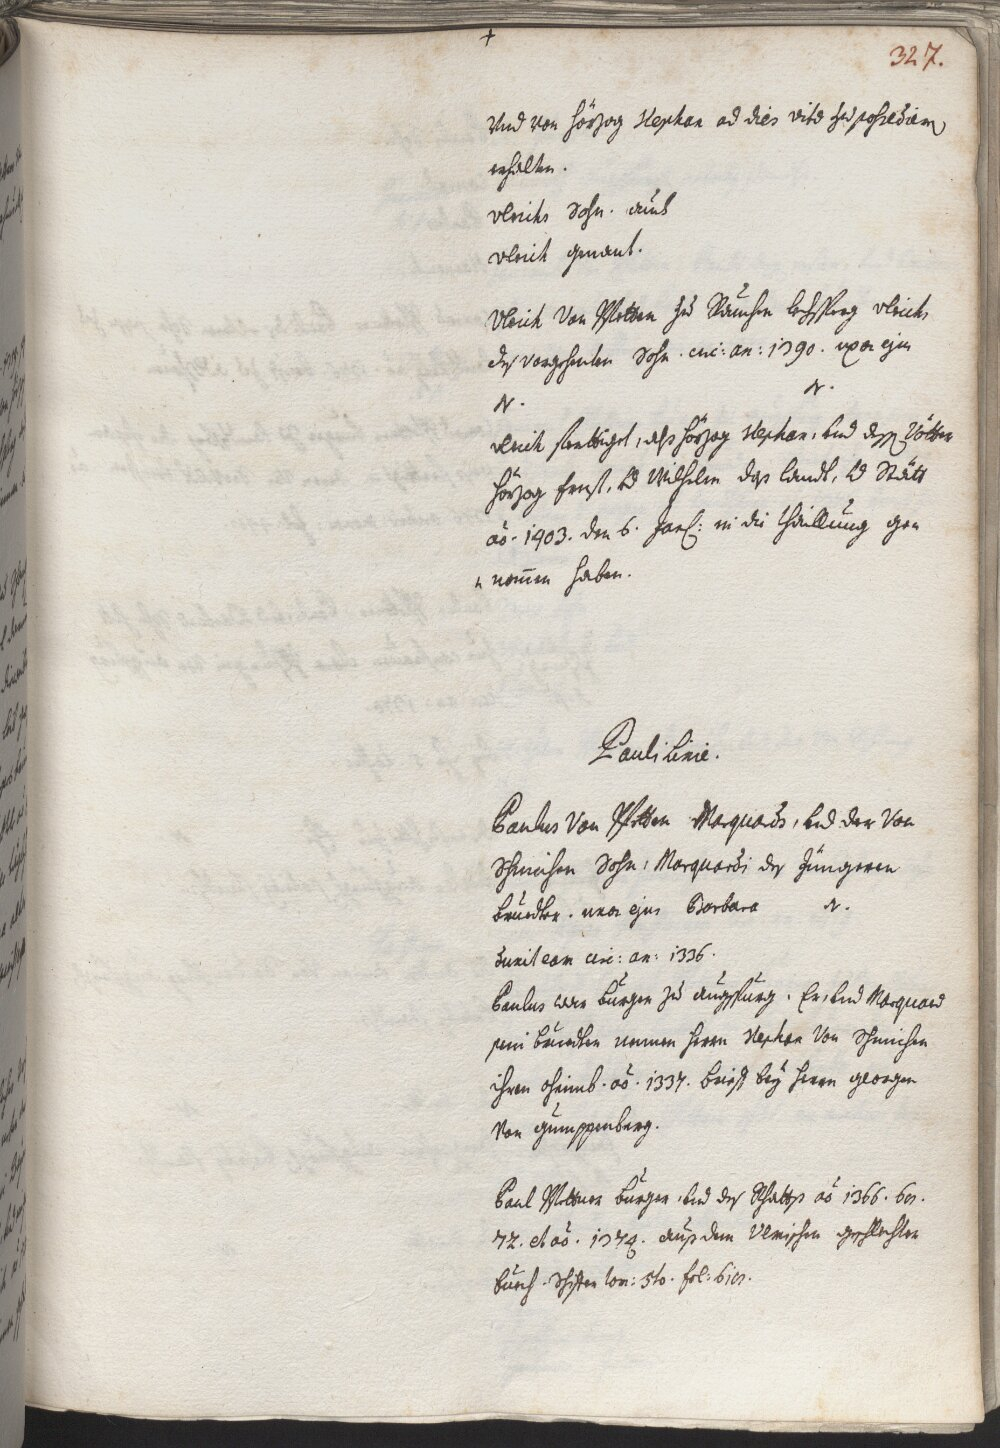 +
327.
Und von Hörzog Stephan ad dies vitæ zu possedirn
erhalten.
Ulrichs Sohn. auch
Ulrich genant.
Ulrich Von Pfetten zu Rauchen Ulrichs
des vorgehenten Sohn. circ: an: 1390. uxor ejus
N. N.
Ulrich sambt, alß Hörzog Stephan, und dessen Vötter
Hörzog Ernst, und Wilhelm daß Landt, und Stätt
aõ. 1403. den 6. Janr: in die Thaillung gen
nommen haben.
Pauli Linie.
Paulus Von Pfetten Marquards, und der Von
Schmichen Sohn, Marquardi des Jüngeren
Bruedter. uxor ejus Barbara N.
duxit eam circ: an: 1336.
Paulus war Burger zu Augspurg. Er, und Marquard
sein Bruedter nennen Herrn Stephan Von Schmichen
ihren oheimb. aõ. 1337. brieff bey Herrn Georgen
Von Gumppenberg.
Paul Pfettner Burger, und des Rhatts aõ 1366. 69.
72. et aõ. 1374. auß dem Ulmischen geschlechter
buech. tom: 5to. fol: